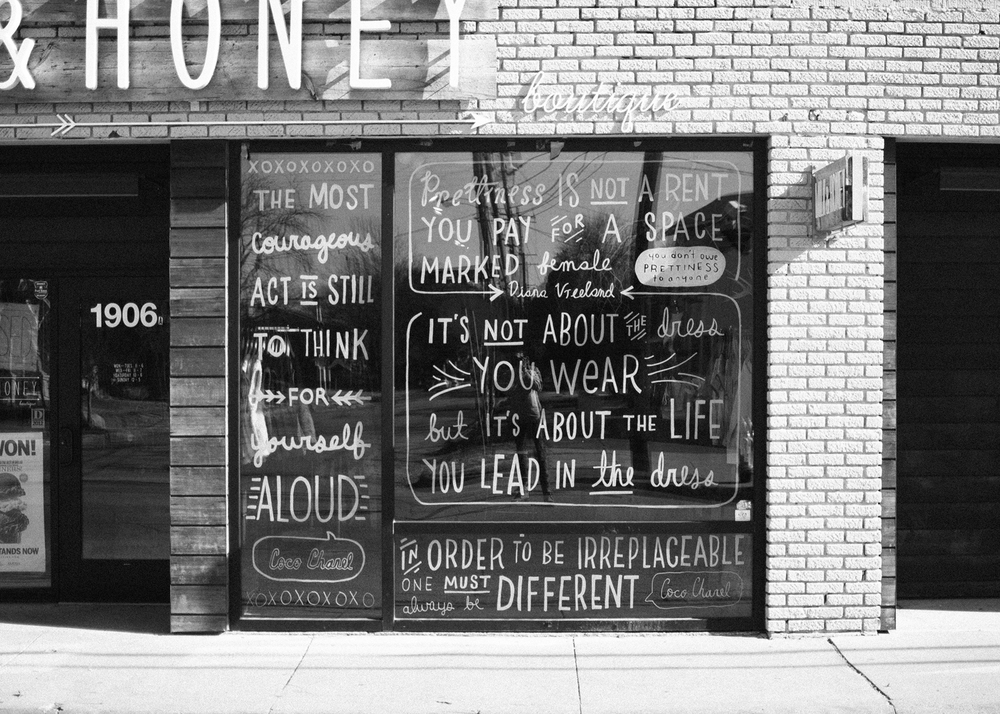 & HONEY
boutique
XOXOXOXOXO
THE MOST
courageous
ACT IS STILL
TO THINK
FOR
yourself
ALOUD
Coco Chanel
XOXOXOXOXO
Prettiness IS NOT A RENT
YOU PAY FOR A SPACE
MARKED female
you don't owe
PRETTINESS
to anyone
Diana Vreeland
IT'S NOT ABOUT THE dress
YOU WEAR
but IT'S ABOUT THE LIFE
YOU LEAD IN the dress
IN ORDER TO BE IRREPLACEABLE
ONE MUST
always be DIFFERENT
Coco Chanel
1906
HONEY
WON!
STANDS NOW